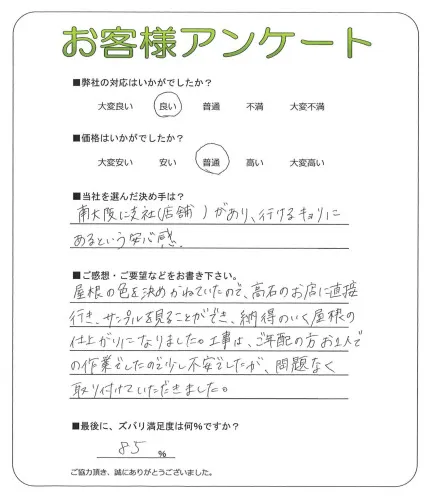 お客様アンケート
■弊社の対応はいかがでしたか？
大変良い 良い 普通 不満 大変不満
■価格はいかがでしたか？
大変安い 安い 普通 高い 大変高い
■当社を選んだ決め手は？
南大阪に支社(店舗 )があり、行けるキョリに
あるという安心感。
■ご感想・ご要望などをお書き下さい。
屋根の色を決めかねていたので、高石のお店に直接
行き、サンプルを見ることができ、納得のいく屋根の
仕上がりになりました。工事は、ご年配の方お1人で
の作業でしたので少し不安でしたが、問題なく
取り付けていただきました。
■最後に、ズバリ満足度は何%ですか？
85 %
ご協力頂き、誠にありがとうございました。